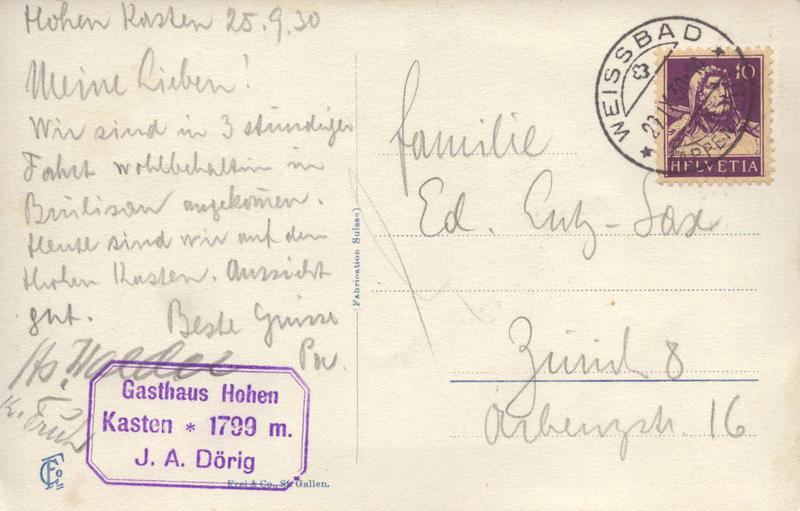 Hohen Kasten 25.9.30
Meine Lieben!
Wir sind in 3 stündiger
Fahrt wohlbehalten in
angekommen.
Heute sind wir auf dem
Hohen Kasten. Aussicht
gut. Beste Grüsse
Gasthaus Hohen
Kasten * 1799 m.
J. A. Dörig
Frei & Co., St. Gallen.
Fabrication Suisse)
WEISSBAD
10
HELVETIA
Familie
Ed. Lutz-Sax
Zürich 8
Arbenzstr. 16